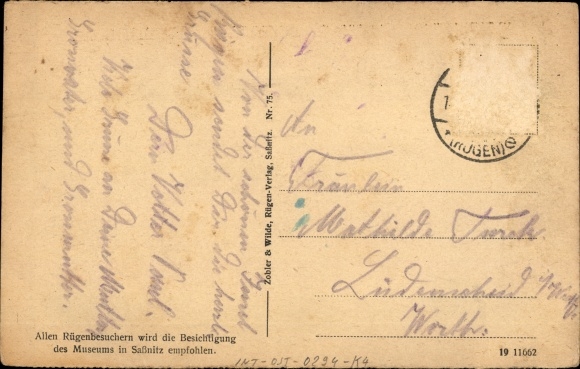 Von der schönen Insel
Rügen sendet Dir die herzl.
Grüsse
Dein Vetter Paul.
Viele Grüsse an Deine Mutter,
Grossvater, und Grossmutter.
Allen Rügenbesuchern wird die Besichtigung
des Museums in Saßnitz empfohlen.
Zobler & Wilde, Rügen-Verlag, Saßnitz. Nr. 75.
(RÜGEN)
An
Fräulein
Mathilde Turck
Lüdenscheid i/Westf.
Worthstr.
19 11662
INT-OST-0294-K4